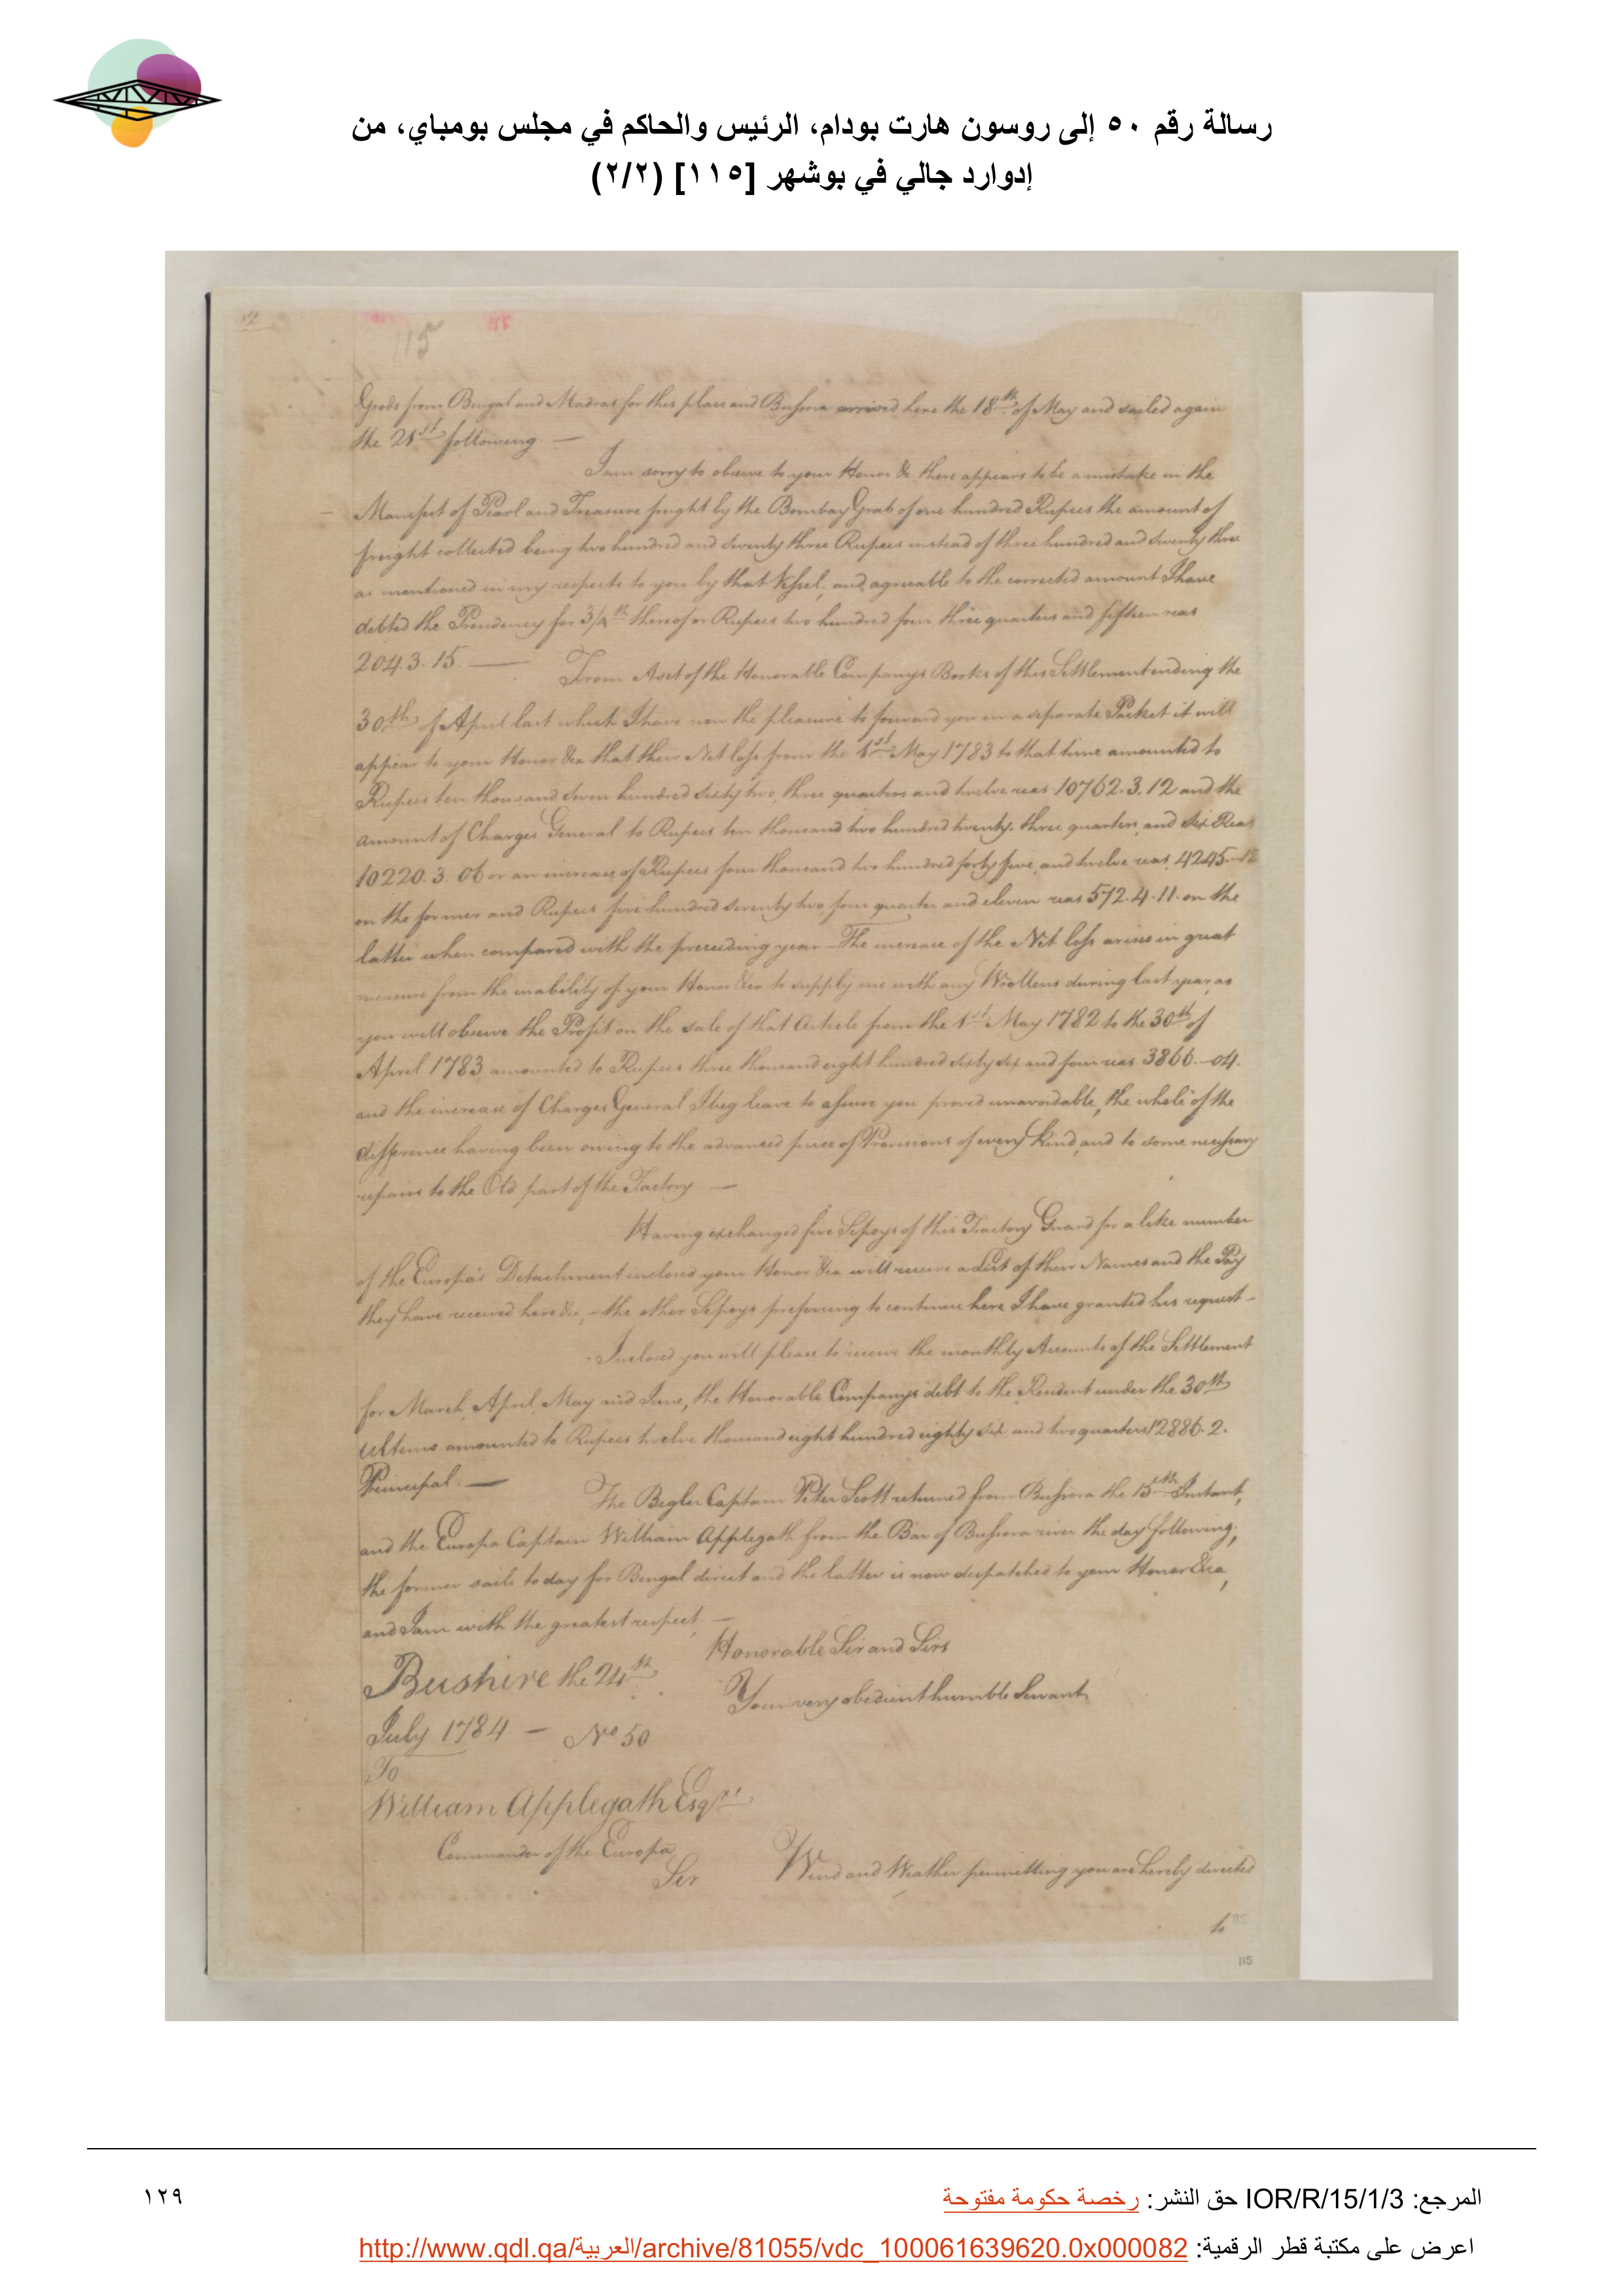 رسالة رقم ٥٠ إلى روسون هارت بودام، الرئيس والحاكم في مجلس بومباي، من
إدوارد جالي في بوشهر [١١٥] (٢/٢)
115
Goods from Bengal and Madras for this place and Bussora arrived here the 18th of May and sailed again
the 21st following —
I am sorry to observe to your Honor &c there appears to be a mistake in the
Manifest of Pearl and Treasure freight by the Bombay Grab of one hundred Rupees the amount of
freight collected being two hundred and seventy three Rupees instead of three hundred and seventy three
as mentioned in my respects to you by that Vessel, and agreeable to the corrected amount I have
debted the Presidency for 3/4th thereof or Rupees two hundred four three quarters and fifteen reas
204.3.15. — From A set of the Honorable Companys Books of this Settlement ending the
30th of April last which I have now the pleasure to forward you in a separate Packet it will
appear to your Honor &ca that their Net loss from the 1st May 1783 to that time amounted to
Rupees ten thousand seven hundred sixty two, three quarters and twelve reas 10762.3.12 and the
amount of Charges General to Rupees ten thousand two hundred twenty, three quarters, and six Reas
10220.3.06 or an increase of Rupees four thousand two hundred forty five, and twelve reas, 4245—12
on the former and Rupees five hundred seventy two, four quarter and eleven reas 572.4.11. on the
latter when compared with the preceeding year — The increase of the Net loss arises in great
measure from the inability of your Honor &ca to supply me with any Woollens during last year, as
you will observe the Profit on the sale of that Article from the 1st May 1782 to the 30th of
April 1783 amounted to Rupees three thousand eight hundred sixty six and four reas 3866.—04.
and the increase of Charges General I beg leave to assure you proved unavoidable, the whole of the
difference having been owing to the advanced price of Provisions of every kind, and to some necessary
repairs to the Old part of the Factory —
Having exchanged five Sepoys of this Factory Guard for a like number
of the Europa's Detachment inclosed your Honor &ca will receive a List of their Names and the Pay
they have received here &c, — the other Sepoys preferring to continue here I have granted his request —
Inclosed you will please to receive the monthly Accounts of the Settlement
for March, April, May and June, the Honorable Companys debt to the Resident under the 30th
Ultimo amounted to Rupees twelve thousand eight hundred eighty six and two quarters 12886.2.
Principal. — The Begler Captain Peter Scott returned from Bussora the 15th Instant,
and the Europa Captain William Applegath from the Bar of Bussora river the day following,
the former sails to day for Bengal direct and the latter is now dispatched to your Honor &ca,
and I am with the greatest respect, —
Honorable Sir and Sirs
Bushire the 24th
Your very obedient humble Servant
July 1784 — No 50
To
William Applegath Esqre
Commander of the Europa
Sir Wind and Weather permitting you are hereby directed
to
115
المرجع: IOR/R/15/1/3 حق النشر: رخصة حكومة مفتوحة
١٢٩
اعرض على مكتبة قطر الرقمية: http://www.qdl.qa/العربية/archive/81055/vdc_100061639620.0x000082